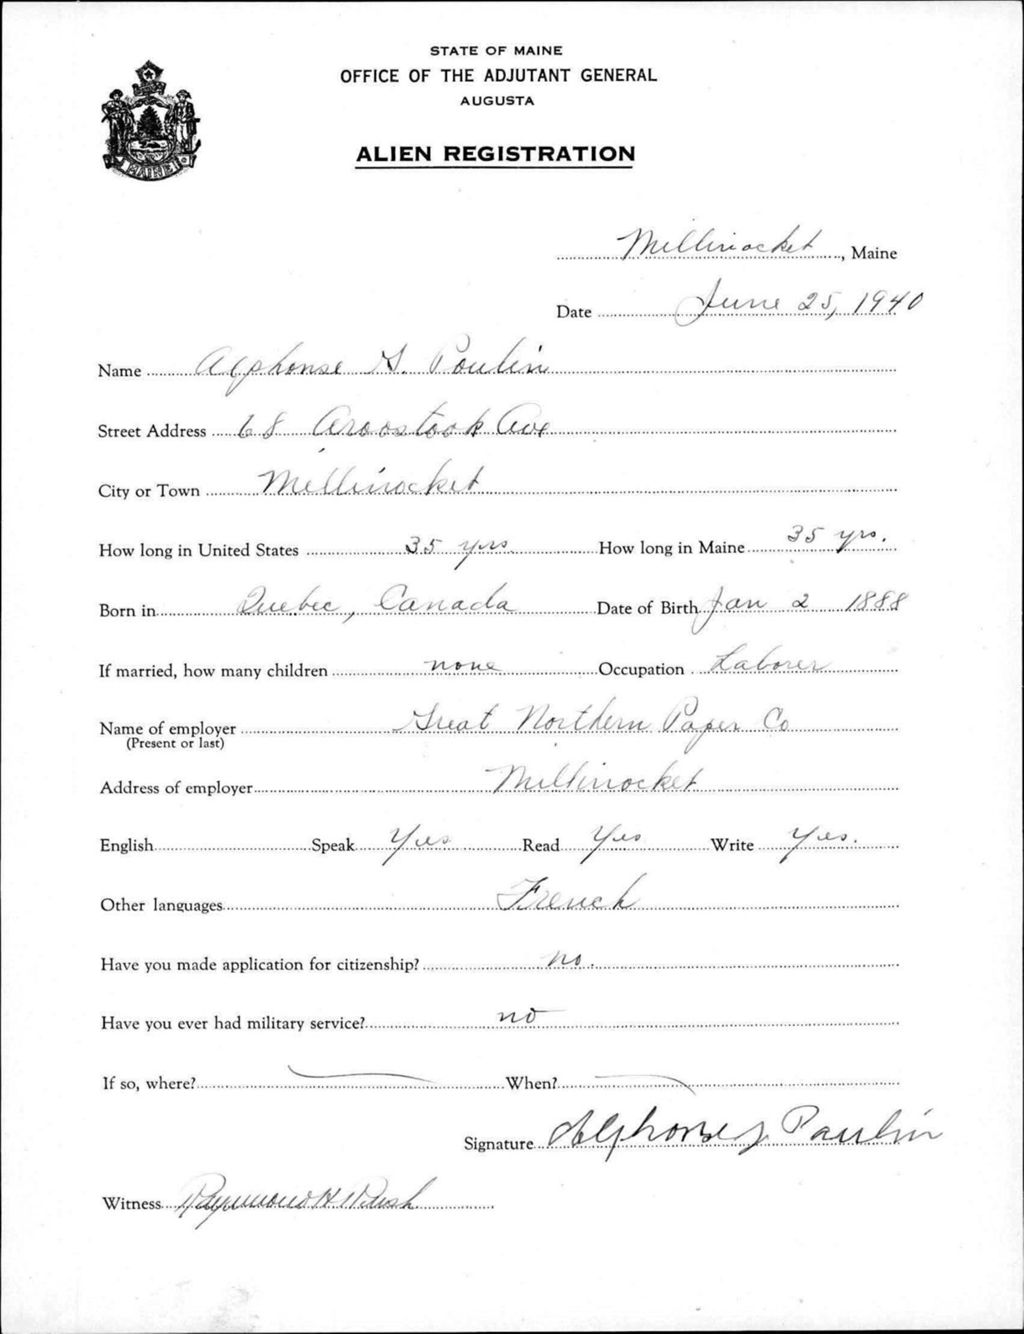 STATE OF MAINE
OFFICE OF THE ADJUTANT GENERAL
AUGUSTA
ALIEN REGISTRATION
MAINE
Millinocket, Maine
Date June 25, 1940
Name Alphonse G. Poulin
Street Address 68 Aroostook Ave
City or Town Millinocket
How long in United States 35 yrs How long in Maine 35 yrs.
Born in Quebec, Canada Date of Birth Jan 2 1888
If married, how many children none Occupation Laborer
Name of employer Great Northern Paper Co
(Present or last)
Address of employer Millinocket
English Speak Yes Read Yes Write Yes.
Other languages French
Have you made application for citizenship? no.
Have you ever had military service? no
If so, where? When?
Signature Alphonse Paulin
Witness Raymond H Rush